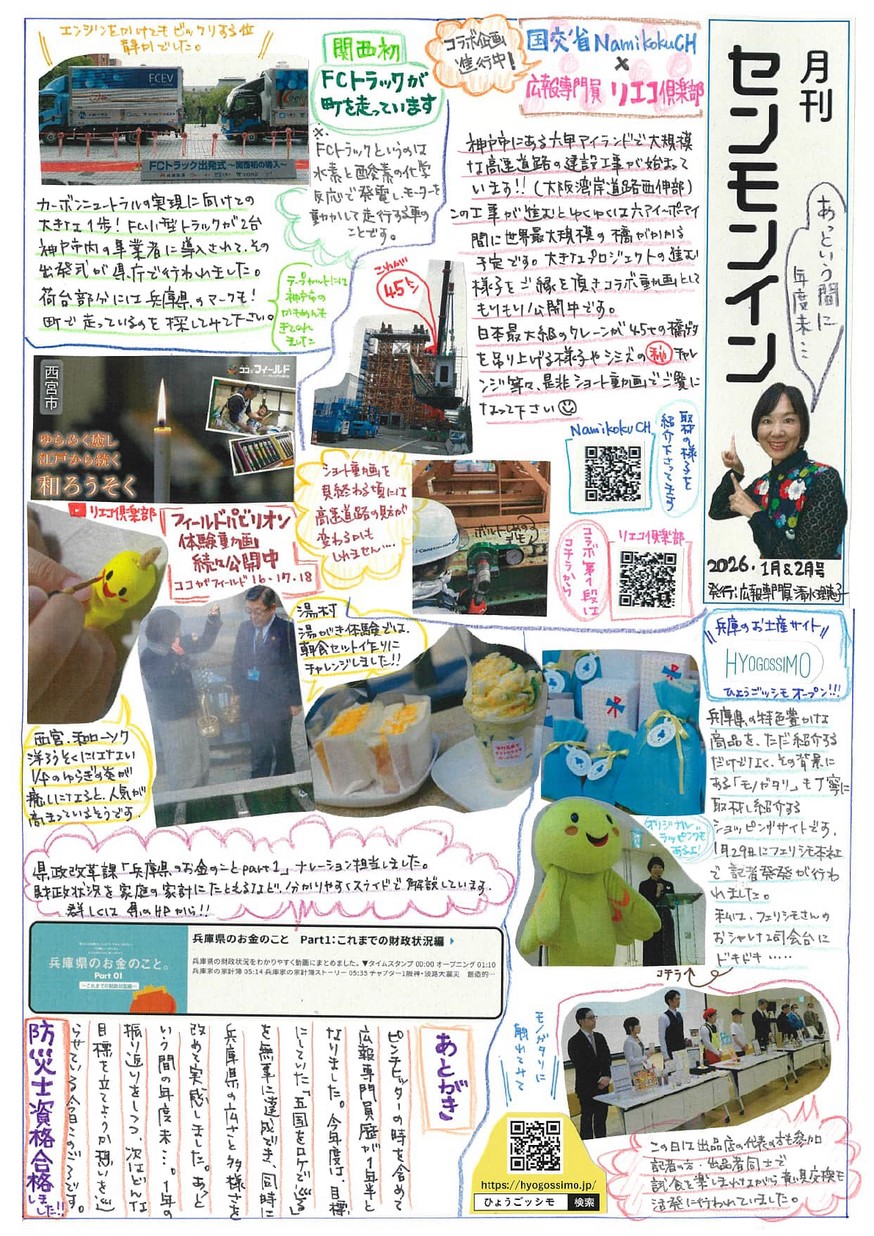 月刊
センモンイン
あっという間に
年度末…
2026・1月&2月号
発行:広報専門員 清水理恵子
エンジンをかけてもビックリする位
静かでした。
FCEV
FCトラック出発式~関西初の導入~
関西初
FCトラックが
町を走っています
※
FCトラックというのは
水素と酸素の化学
反応で発電しモーターを
動かして走行する車の
ことです。
カーボンニュートラルの実現に向けての
大きな1歩!FC小型トラックが2台
神戸市内の事業者に導入されて、その
出発式が県庁で行われました。
荷台部分には兵庫県のマークも!
町で走っているのを探してみて下さい。
テープカットには
神戸市の
かもめんも
きてくれ
ました
コラボ企画
進行中!
国交省NamikokuCH
×
広報専門員 リエコ倶楽部
神戸市にある六甲アイランドで大規模
な高速道路の建設工事が始まって
います!!(大阪湾岸道路西伸部)
この工事が進むとゆくゆくは六アイ-ポーアイ
間に世界最大規模の橋がかかる
予定です。大きなプロジェクトの進む
様子をご縁を頂きコラボ動画として
もりもり公開中です。
日本最大級のクレーンが45tの橋ゲタ
を吊り上げる様子やシミズの㊙チャレ
ンジ等々、是非ショート動画でご覧に
なって下さい
これが
45トン
NamikokuCH
取材の様子を
紹介下さってます
ショート動画を
見終わる頃には
高速道路の見方が
変わるかも
しれません…
ボルトしめの
デモ
コラボ第1段は
コチラから
リエコ倶楽部
西宮市
ココがフィールド
ゆらめく癒し
江戸から続く
和ろうそく
リエコ倶楽部
フィールドパビリオン
体験動画
続々公開中
ココがフィールド16・17・18
湯村
湯がき体験では、
朝食セット作りに
チャレンジしました!!
西宮・和ローソク
洋ろうそくにはない
1/fのゆらぎの炎が
癒しになると、人気が
高まっているそうです。
\\兵庫のお土産サイト//
HYOGOSSIMO
ひょうごッシモ オープン!!!
兵庫県の特色豊かな
商品を、ただ紹介する
だけでなく、その背景に
ある「モノガタリ」も丁寧に
取材し紹介する
ショッピングサイトです。
1月29日にフェリシモ本社
で記者発発が行わ
れました。
私は、フェリシモさんの
オシャレな司会台に
ドキドキ……
コチラ
オリジナル
ラッピングも
あるよ!
県政改革課「兵庫県のお金のことpart1」ナレーション担当しました。
財政状況を家庭の家計にたとえるなど、分かりやすくスライドで解説しています。
詳しくは県のHPから!!
兵庫県のお金のこと。
Part 01
~これまでの財政状況編~
兵庫県のお金のこと Part1:これまでの財政状況編
兵庫県の財政状況をわかりやすく動画にまとめました。▼タイムスタンプ 00:00 オープニング 01:10
兵庫県の家計簿 05:14 兵庫県の家計簿ストーリー 05:35 チャプター1阪神・淡路大震災 創造的…
あとがき
ピンチヒッターの時を含めて
広報専門員歴が1年半と
なりました。今年度は、目標
にしていた「五国をロケで巡る」
を無事に達成でき、同時に
兵庫県の広さと多様さを
改めて実感しました。あっと
いう間の年度末…。1年の
振り返りをしつつ、次はどんな
目標を立てようか想いを巡
らせている今日このごろです。
防災士資格合格しました!!
モノガタリに
触れてみて
https://hyogossimo.jp/
ひょうごッシモ 検索
この日は出品店の代表の方も参加
記者の方・出品者同士で
試食を楽しまれながら意見交換も
活発に行われていました。